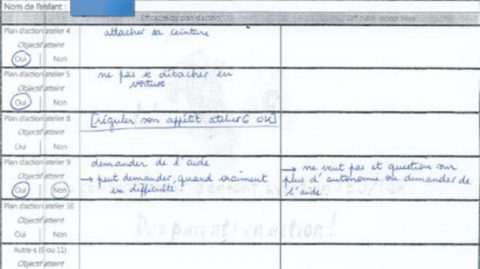 Nom de l'enfant :
Efficacité du plan d'action
Difficultés rencontrées
Plan d'action atelier 4
attacher sa ceinture
Objectif atteint
Oui Non
Plan d'action atelier 5
ne pas se détacher en
voiture
Objectif atteint
Oui Non
Plan d'action atelier 8
[réguler son appétit atelier 6 OK]
Objectif atteint
Oui Non
Plan d'action atelier 9
demander de l'aide
→ peut demander, quand vraiment
en difficulté.
→ ne veut pas et question sur
plus d'autonomie ou demander de
l'aide
Objectif atteint
Oui Non
Plan d'action atelier 10
Objectif atteint
Oui Non
Des parents en action!
Autre-s (6 ou 11)
Objectif atteint